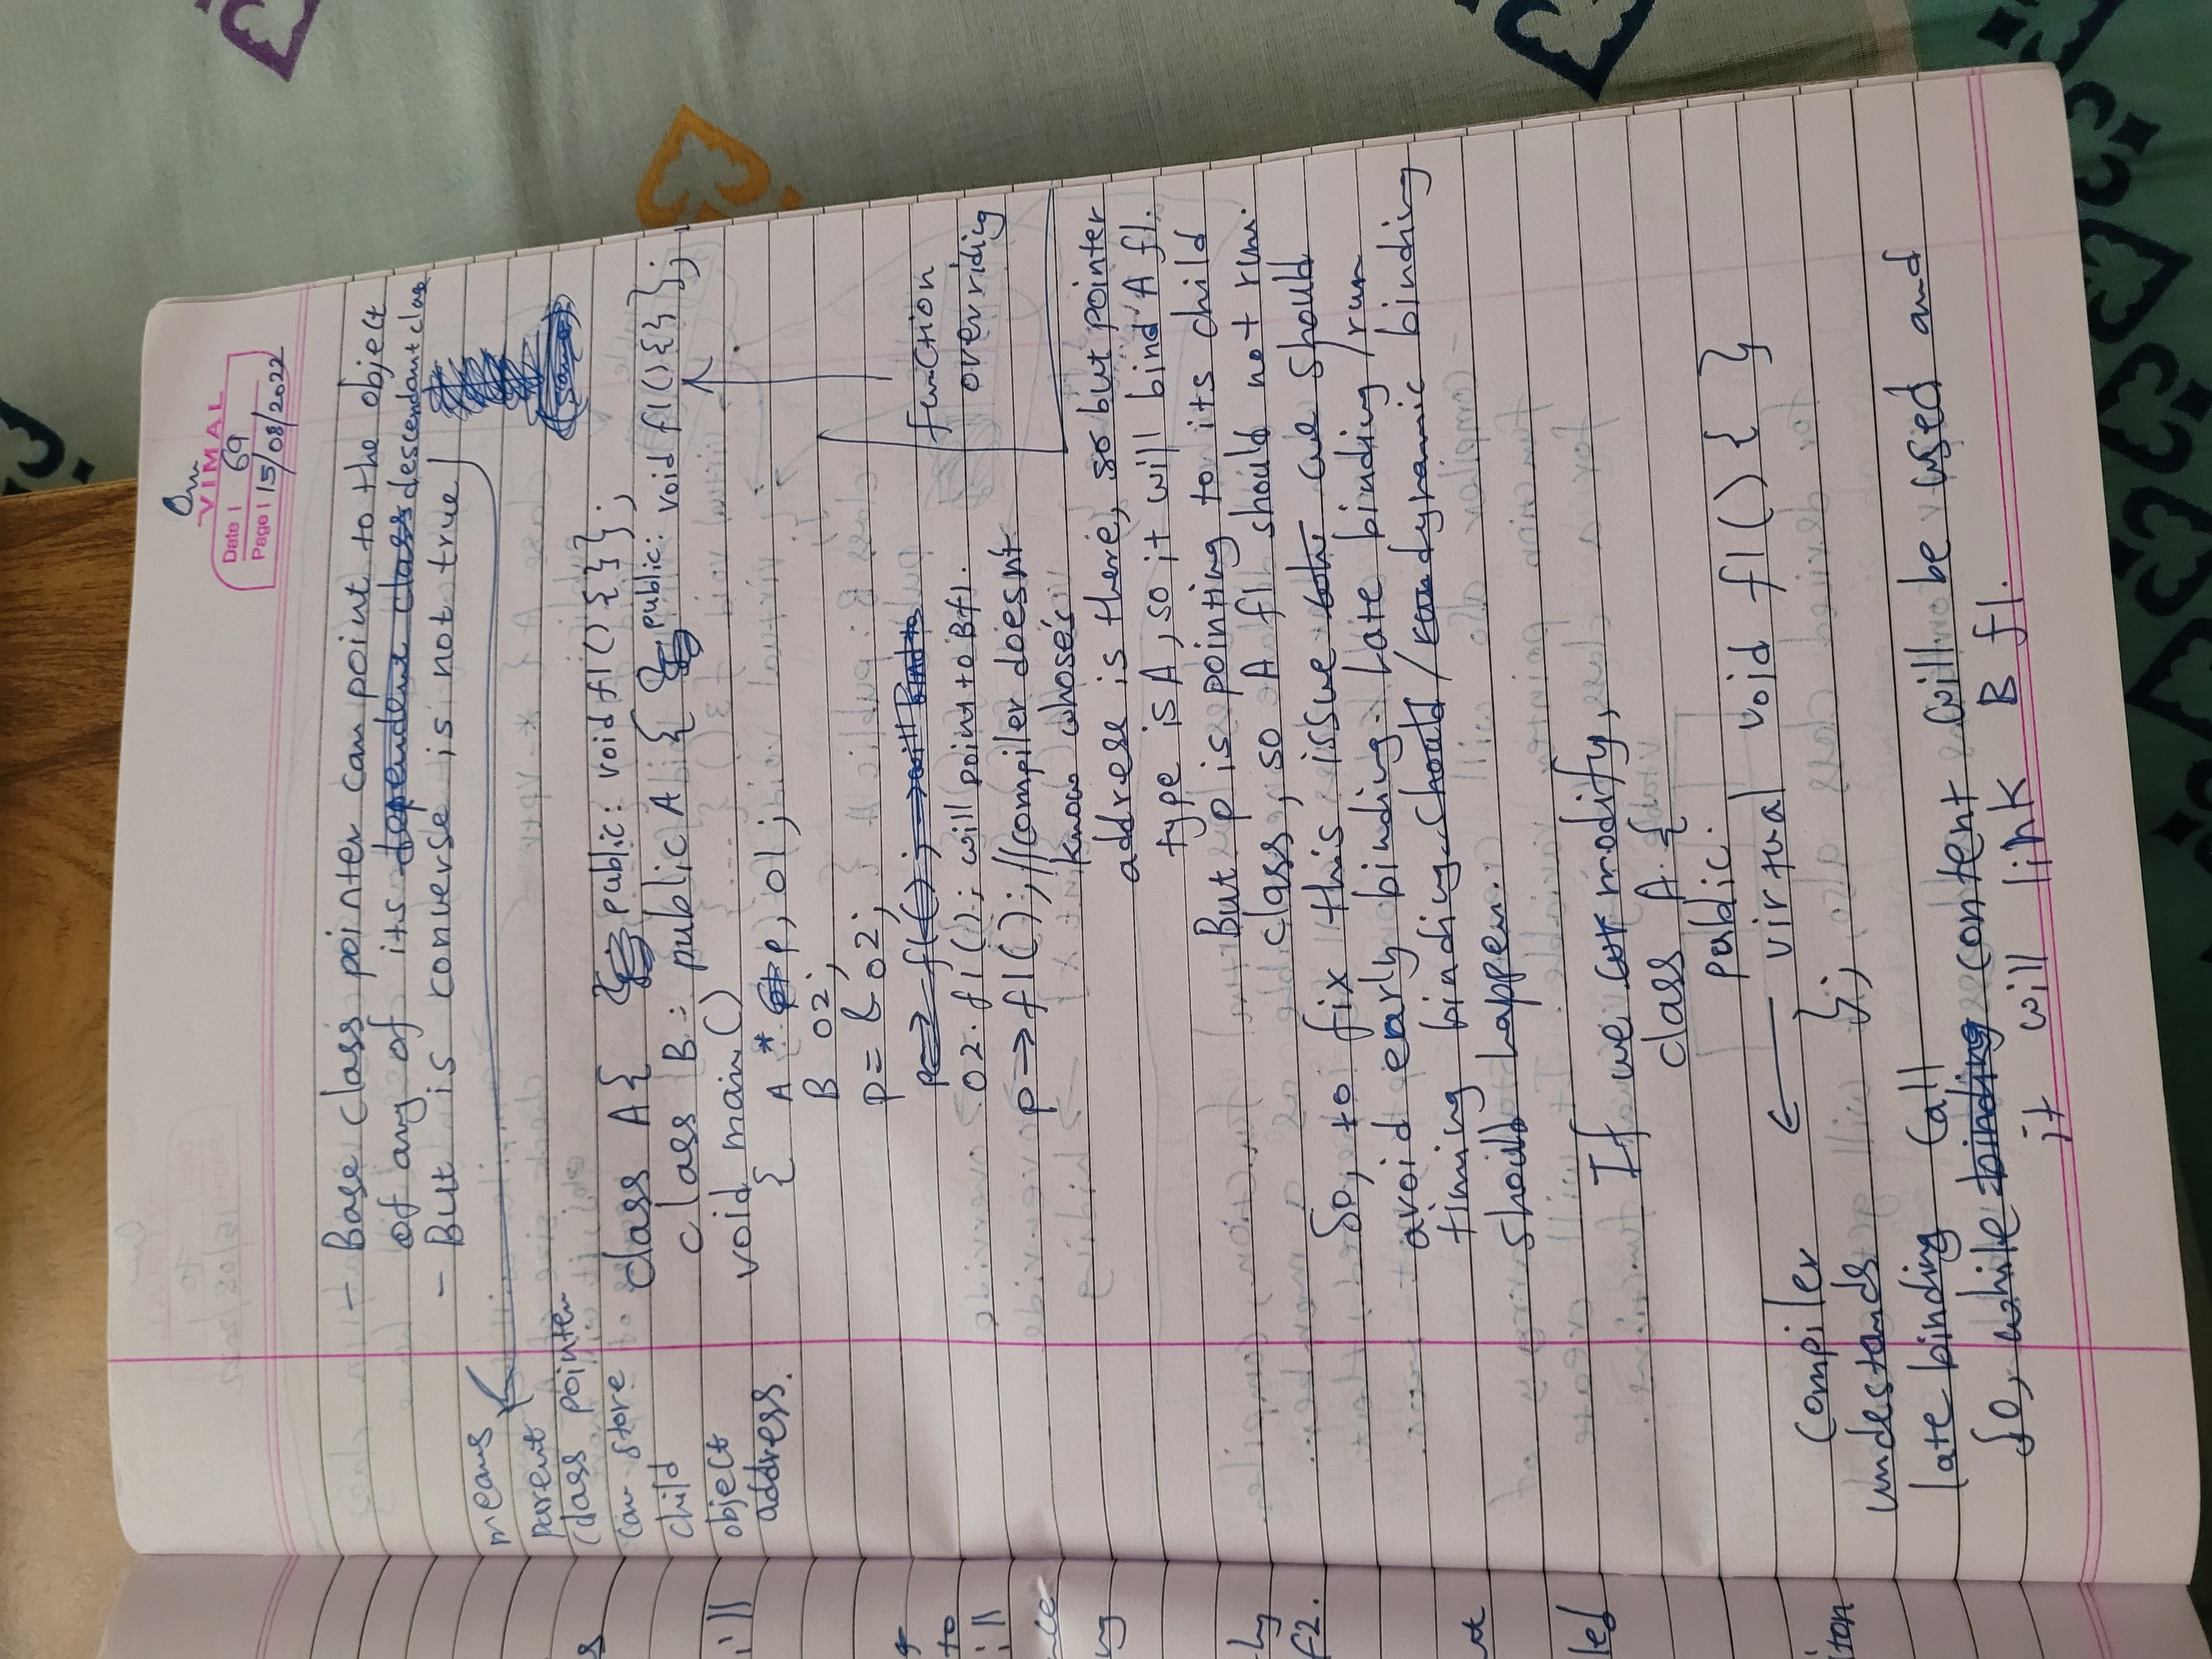 Om
VIMAL
Date | 69
Page | 15/08/2022
- Base class pointer can point to the object
of any of its dependent class descendant class
- But is converse is not true
means
parent
class pointer
can store
child
object
address.
(same)
class A{ public: void f1() { } };
class B: public A { public: void f1() { } };
void main()
{ A * p, o1;
B o2;
p = & o2;
p → f1(); → will bind to
o2.f1(); will point to B f1.
p → f1(); // compiler doesn't
know whose's
address is there, so but pointer
type is A, so it will bind A f1.
function
overriding
But p is pointing to its child
class, so A f1 should not run.
So, to fix this issue we should
avoid early binding. Late binding / run
timing binding should / run dynamic binding
should happen.
If we modify,
class A {
public:
virtual void f1() { }
};
Compiler
undestands
late binding call
So, while binding content will be used and
it will link B f1.
s
; //
to
; //
nce
ng
f2.
led
iton